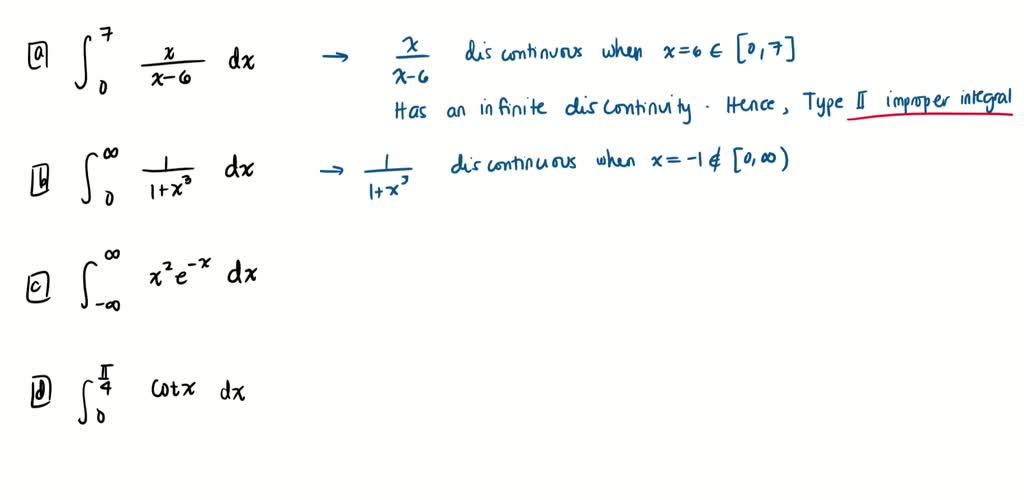 a ∫₀⁷ x/(x-6) dx → x/(x-6) discontinuous when x=6 ∈ [0,7]
Has an infinite discontinuity. Hence, Type II improper integral
b ∫₀^∞ 1/(1+x³) dx → 1/(1+x³) discontinuous when x=-1 ∉ [0,∞)
c ∫₋∞^∞ x²e⁻ˣ dx
d ∫₀^(π/4) cotx dx